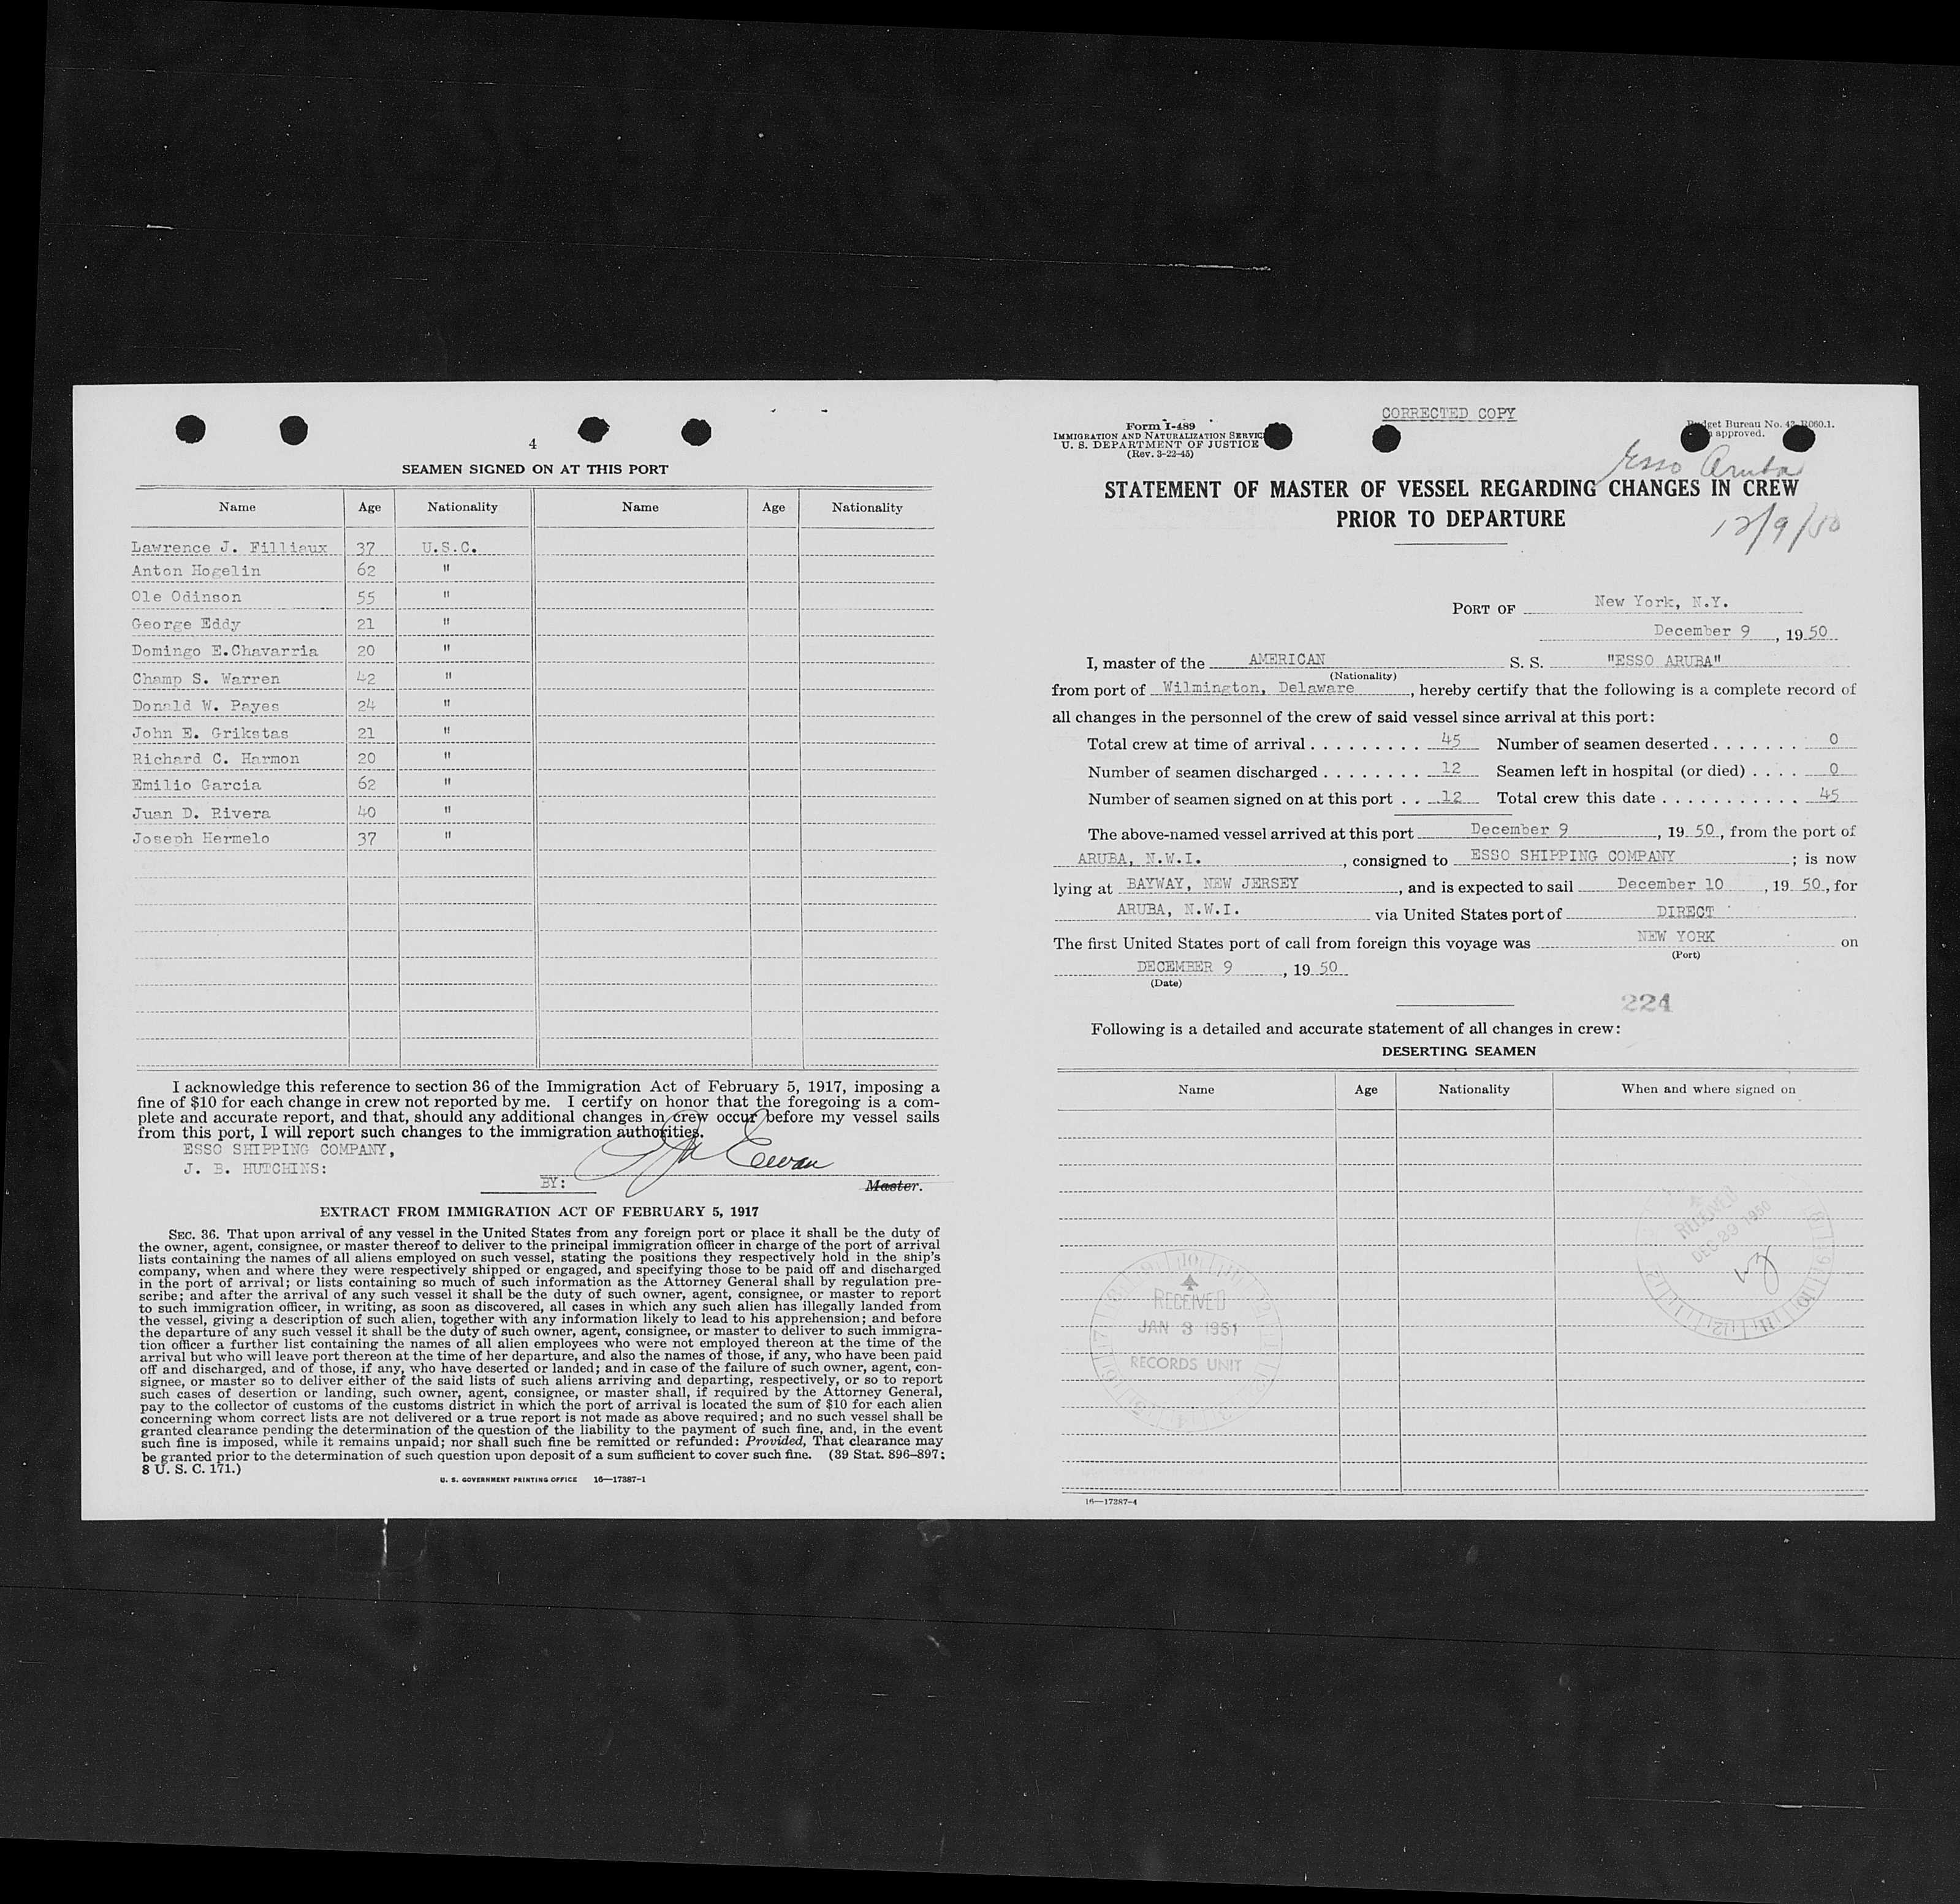 4
SEAMEN SIGNED ON AT THIS PORT
Name Age Nationality Name Age Nationality
Lawrence J. Filliaux 37 U.S.C.
Anton Hogelin 62 "
Ole Odinson 55 "
George Eddy 21 "
Domingo E.Chavarria 20 "
Champ S. Warren 42 "
Donald W. Payes 24 "
John E. Grikstas 21 "
Richard C. Harmon 20 "
Emilio Garcia 62 "
Juan D. Rivera 40 "
Joseph Hermelo 37 "
I acknowledge this reference to section 36 of the Immigration Act of February 5, 1917, imposing a
fine of $10 for each change in crew not reported by me. I certify on honor that the foregoing is a com-
plete and accurate report, and that, should any additional changes in crew occur before my vessel sails
from this port, I will report such changes to the immigration authorities.
ESSO SHIPPING COMPANY,
J. B. HUTCHINS:
BY: Master.
EXTRACT FROM IMMIGRATION ACT OF FEBRUARY 5, 1917
SEC. 36. That upon arrival of any vessel in the United States from any foreign port or place it shall be the duty of
the owner, agent, consignee, or master thereof to deliver to the principal immigration officer in charge of the port of arrival
lists containing the names of all aliens employed on such vessel, stating the positions they respectively hold in the ship's
company, when and where they were respectively shipped or engaged, and specifying those to be paid off and discharged
in the port of arrival; or lists containing so much of such information as the Attorney General shall by regulation pre-
scribe; and after the arrival of any such vessel it shall be the duty of such owner, agent, consignee, or master to report
to such immigration officer, in writing, as soon as discovered, all cases in which any such alien has illegally landed from
the vessel, giving a description of such alien, together with any information likely to lead to his apprehension; and before
the departure of any such vessel it shall be the duty of such owner, agent, consignee, or master to deliver to such immigra-
tion officer a further list containing the names of all alien employees who were not employed thereon at the time of the
arrival but who will leave port thereon at the time of her departure, and also the names of those, if any, who have been paid
off and discharged, and of those, if any, who have deserted or landed; and in case of the failure of such owner, agent, con-
signee, or master so to deliver either of the said lists of such aliens arriving and departing, respectively, or so to report
such cases of desertion or landing, such owner, agent, consignee, or master shall, if required by the Attorney General,
pay to the collector of customs of the customs district in which the port of arrival is located the sum of $10 for each alien
concerning whom correct lists are not delivered or a true report is not made as above required; and no such vessel shall be
granted clearance pending the determination of the question of the liability to the payment of such fine, and, in the event
such fine is imposed, while it remains unpaid; nor shall such fine be remitted or refunded: Provided, That clearance may
be granted prior to the determination of such question upon deposit of a sum sufficient to cover such fine. (39 Stat. 896-897;
8 U. S. C. 171.)
U. S. GOVERNMENT PRINTING OFFICE 16—17387-1
CORRECTED COPY
Form I-489
IMMIGRATION AND NATURALIZATION SERVICE
U. S. DEPARTMENT OF JUSTICE
(Rev. 3-22-45)
Budget Bureau No. 43-R060.1.
approved.
Esso Aruba
STATEMENT OF MASTER OF VESSEL REGARDING CHANGES IN CREW
PRIOR TO DEPARTURE
12/9/50
PORT OF New York, N.Y.
December 9, 1950
I, master of the AMERICAN S. S. "ESSO ARUBA"
(Nationality)
from port of Wilmington, Delaware, hereby certify that the following is a complete record of
all changes in the personnel of the crew of said vessel since arrival at this port:
Total crew at time of arrival . . . . . . . . . 45 Number of seamen deserted . . . . . . . 0
Number of seamen discharged . . . . . . . . 12 Seamen left in hospital (or died) . . . . 0
Number of seamen signed on at this port . . 12 Total crew this date . . . . . . . . . . . 45
The above-named vessel arrived at this port December 9, 1950, from the port of
ARUBA, N.W.I., consigned to ESSO SHIPPING COMPANY; is now
lying at BAYWAY, NEW JERSEY, and is expected to sail December 10, 1950, for
ARUBA, N.W.I. via United States port of DIRECT
The first United States port of call from foreign this voyage was NEW YORK on
(Port)
DECEMBER 9, 1950
(Date)
224
Following is a detailed and accurate statement of all changes in crew:
DESERTING SEAMEN
Name Age Nationality When and where signed on
RECEIVED
DEC 29 1950
RECEIVED
JAN 3 1951
RECORDS UNIT
16—17387-4